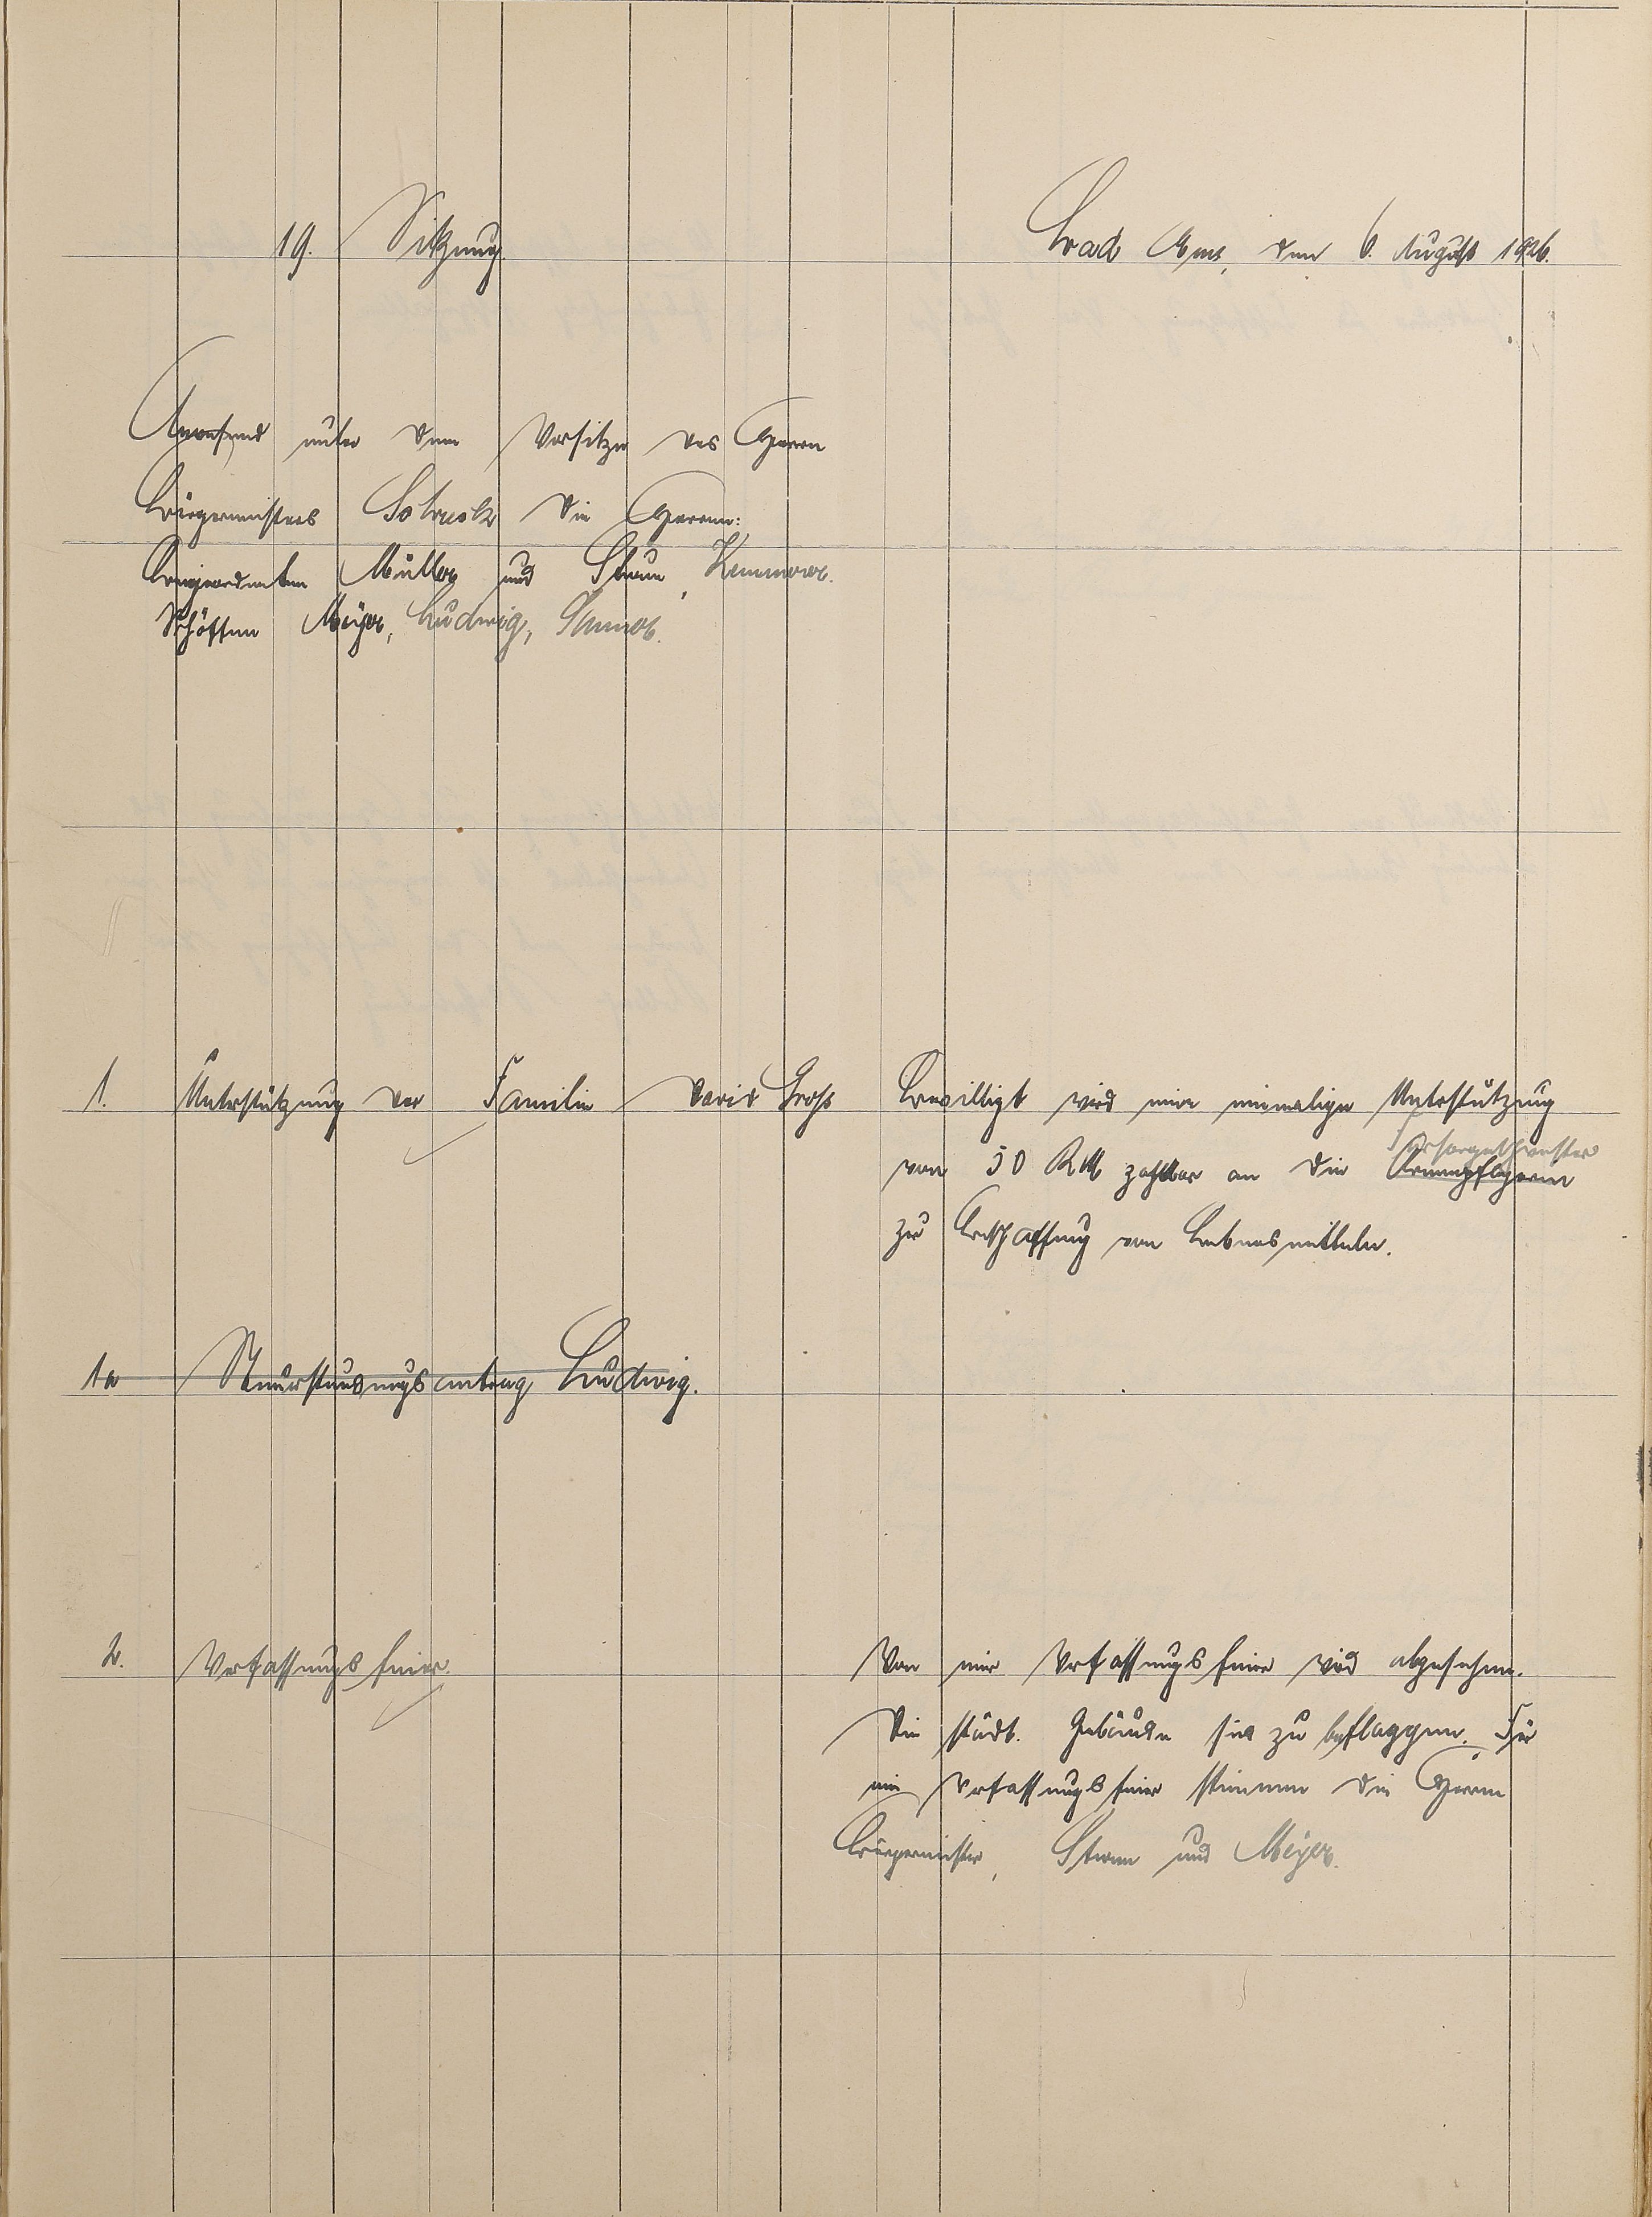 19. Sitzung.
Bad Ems, den 6. August 1926.
Anwesend unter dem Vorsitze des Herrn
Bürgermeisters Schreck die Herren:
Beigeordneten Müller und Stamm, Kemmerer.
Schöffen Meyer, Ludwig,
1. Unterstützung der Familie David Groß
Bewilligt wird eine einmalige Unterstützung
Fürsorgeschwester
von 50 RM zahlbar an die Armenpflegerin
zu Beschaffung von Lebensmitteln.
1a Steuerstundungsantrag Ludwig.
2. Verfassungsfeier.
Von einer Verfassungsfeier wird abgesehen.
Die städt. Gebäude sind zu beflaggen. Für
eine Verfassungsfeier stimmen die Herren
Bürgermeister, Stamm und Meyer.